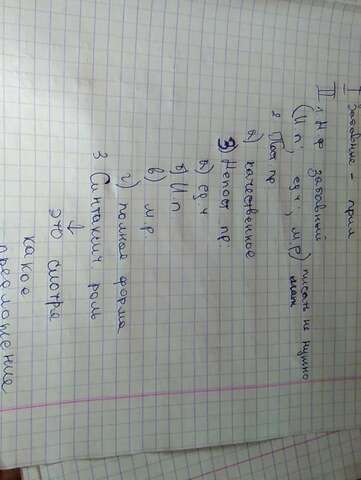 I забавные - прил
II 1 Н.ф. забавный
(И п, ед.ч, м.р) писать не нужно
2 Пост пр
а) качественное
3) Непост пр.
а) ед. ч
б) И п
в) м р
г) полная форма
3 Синтаксич. роль
↓
это смотря
какое
предложение